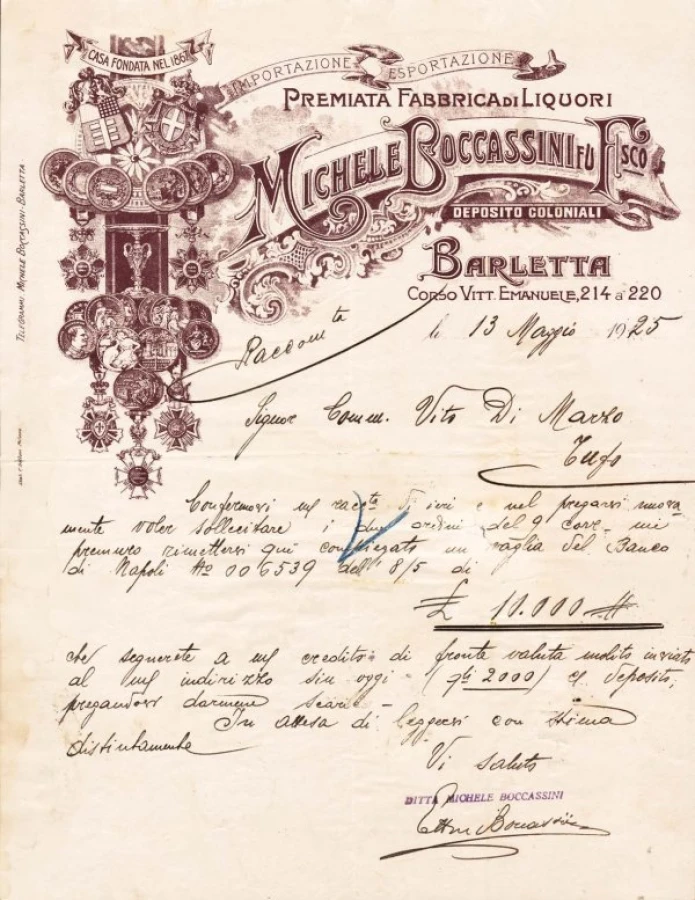 CASA FONDATA NEL 1867
IMPORTAZIONE ESPORTAZIONE
PREMIATA FABBRICA DI LIQUORI
MICHELE BOCCASSINI FU F.SCO
DEPOSITO COLONIALI
BARLETTA
CORSO VITT. EMANUELE, 214 a 220
TELEGRAMMI MICHELE BOCCASSINI-BARLETTA
Raccom.ta
li 13 Maggio 1925
Signor Comm. Vito Di Marzo
Tufo
Confermovi mf racc.ta di ieri e nel pregarvi nuova-
mente voler sollecitare i due ordini del 9 corr. mi
premuro rimettervi qui compiegato un vaglia del Banco
di Napoli No 006539 dell' 8/5 di
£ 10.000 #
che segnerete a mf credito di fronte valuta inviato
al mf indirizzo sin oggi (qli 2000) es deposito,
pregandovi darmene scarico
In attesa di leggervi con stima
distintamente
Vi saluto
DITTA MICHELE BOCCASSINI
Ettore Boccassini